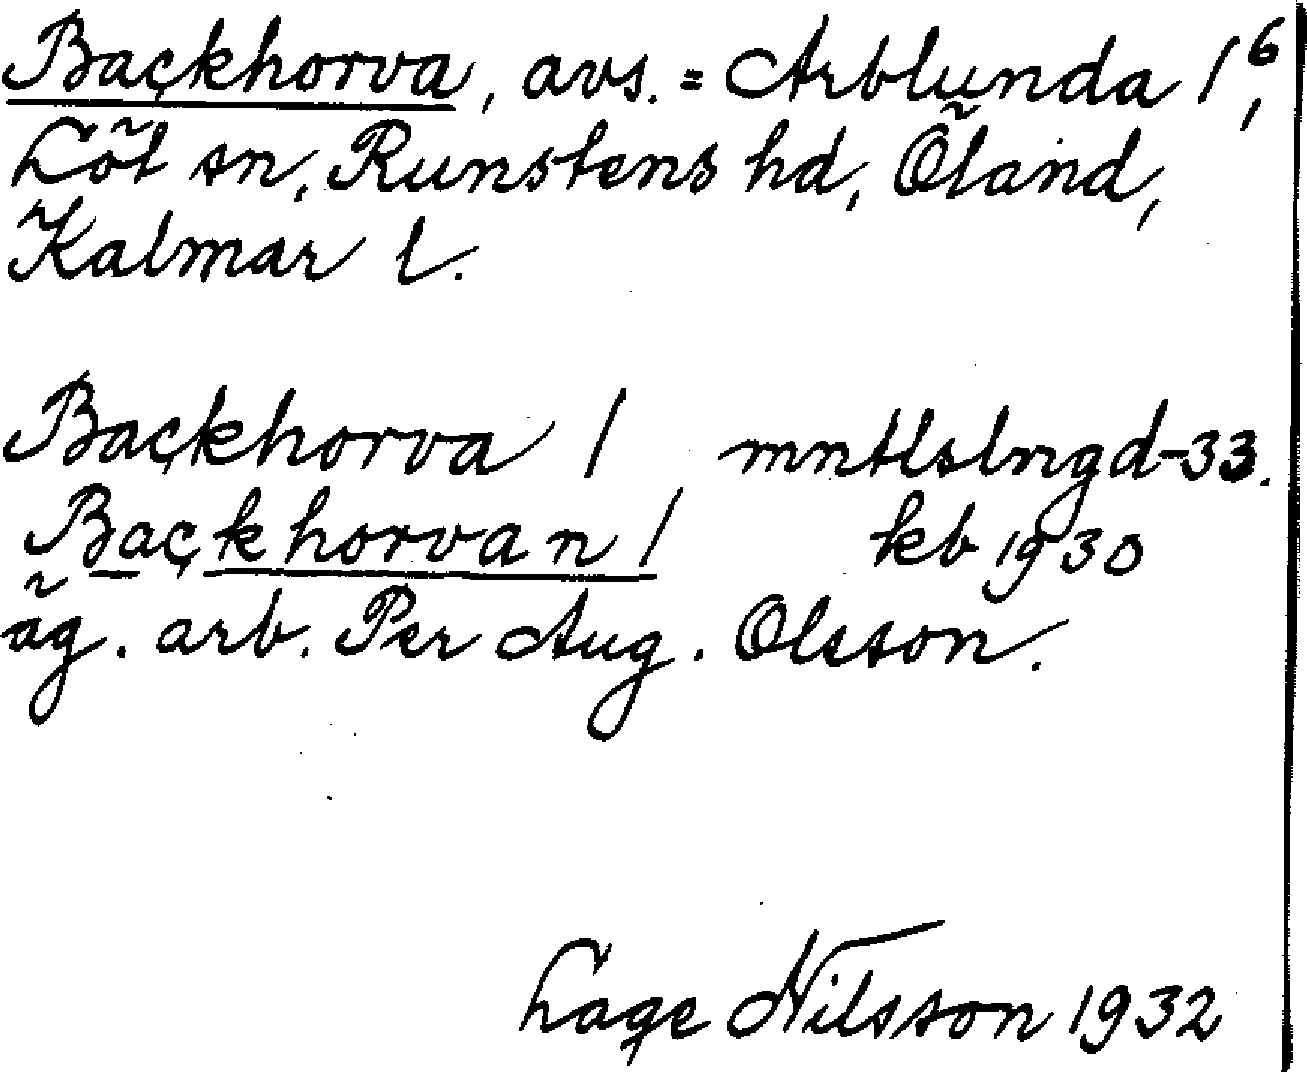 Backhorva, avs. = Arblunda 1⁶,
Löt sn, Runstens hd, Öland,
Kalmar l.
Backhorva 1 mntlslngd-33.
Backhorvan 1 kb 1930
äg. arb. Per Aug. Olsson.
Lage Nilsson 1932